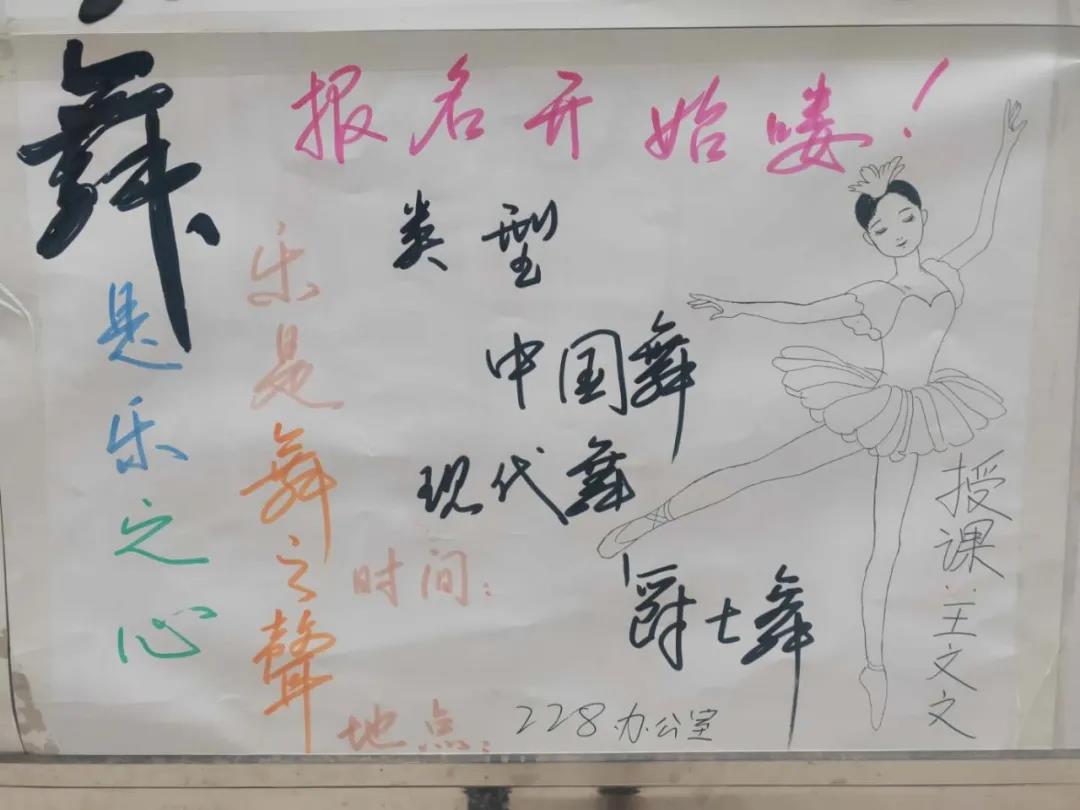 报名开始喽！
舞是乐之心
乐是舞之聲
类型
中国舞
现代舞
爵士舞
时间：
地点：228办公室
授课：王文文